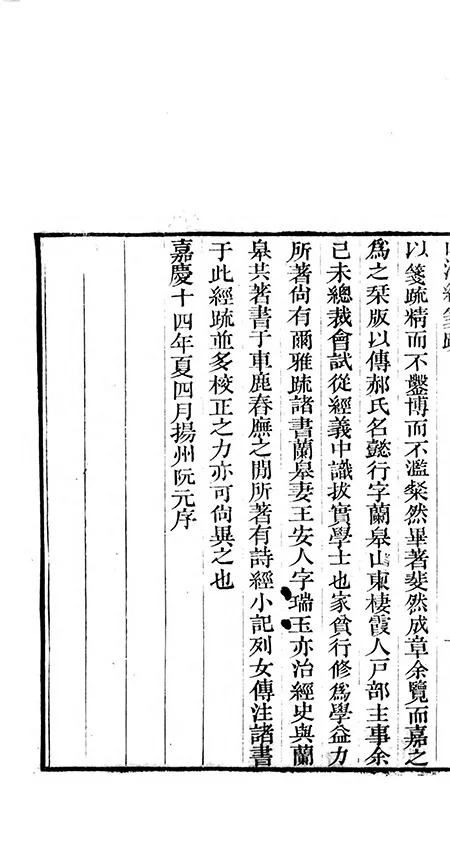 以箋疏精而不鑿博而不濫粲然畢著斐然成章余覽而嘉之
爲之栞版以傳郝氏名懿行字蘭皋山東棲霞人戸部主事余
己未總裁會試從經義中識拔實學士也家貧行修爲學益力
所著尙有爾雅疏諸書蘭皋妻王安人字瑞玉亦治經史與蘭
皋共著書于車鹿春廡之閒所著有詩經小記列女傳注諸書
于此經疏並多校正之力亦可尙異之也
嘉慶十四年夏四月揚州阮元序